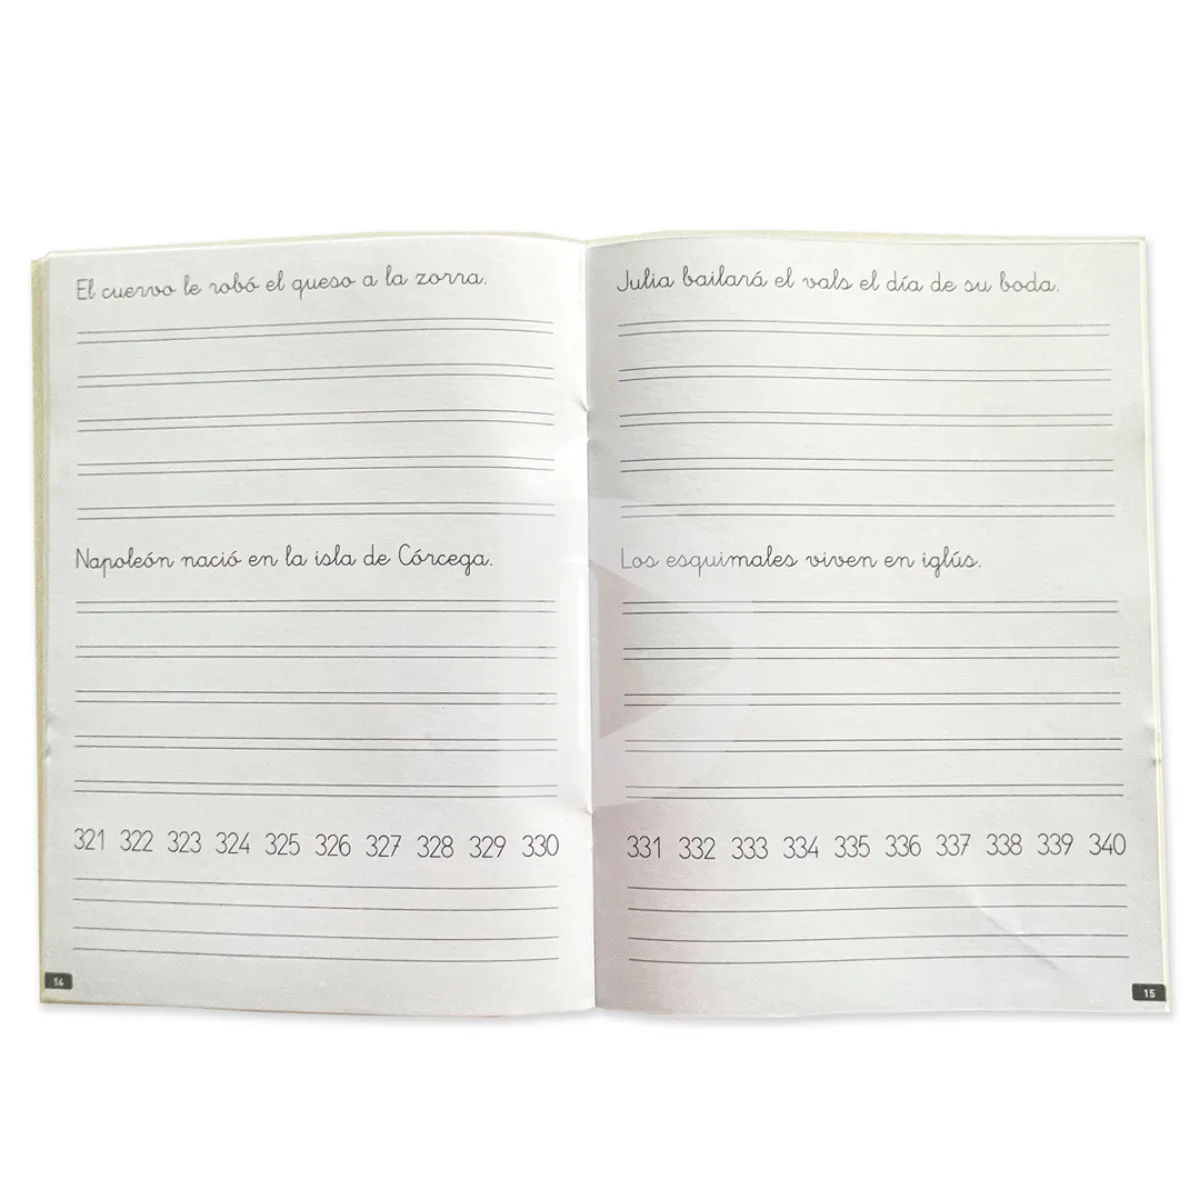 El cuervo le robó el queso a la zorra.
Napoleón nació en la isla de Córcega.
321 322 323 324 325 326 327 328 329 330
14
Julia bailará el vals el día de su boda.
Los esquimales viven en iglús.
331 332 333 334 335 336 337 338 339 340
15